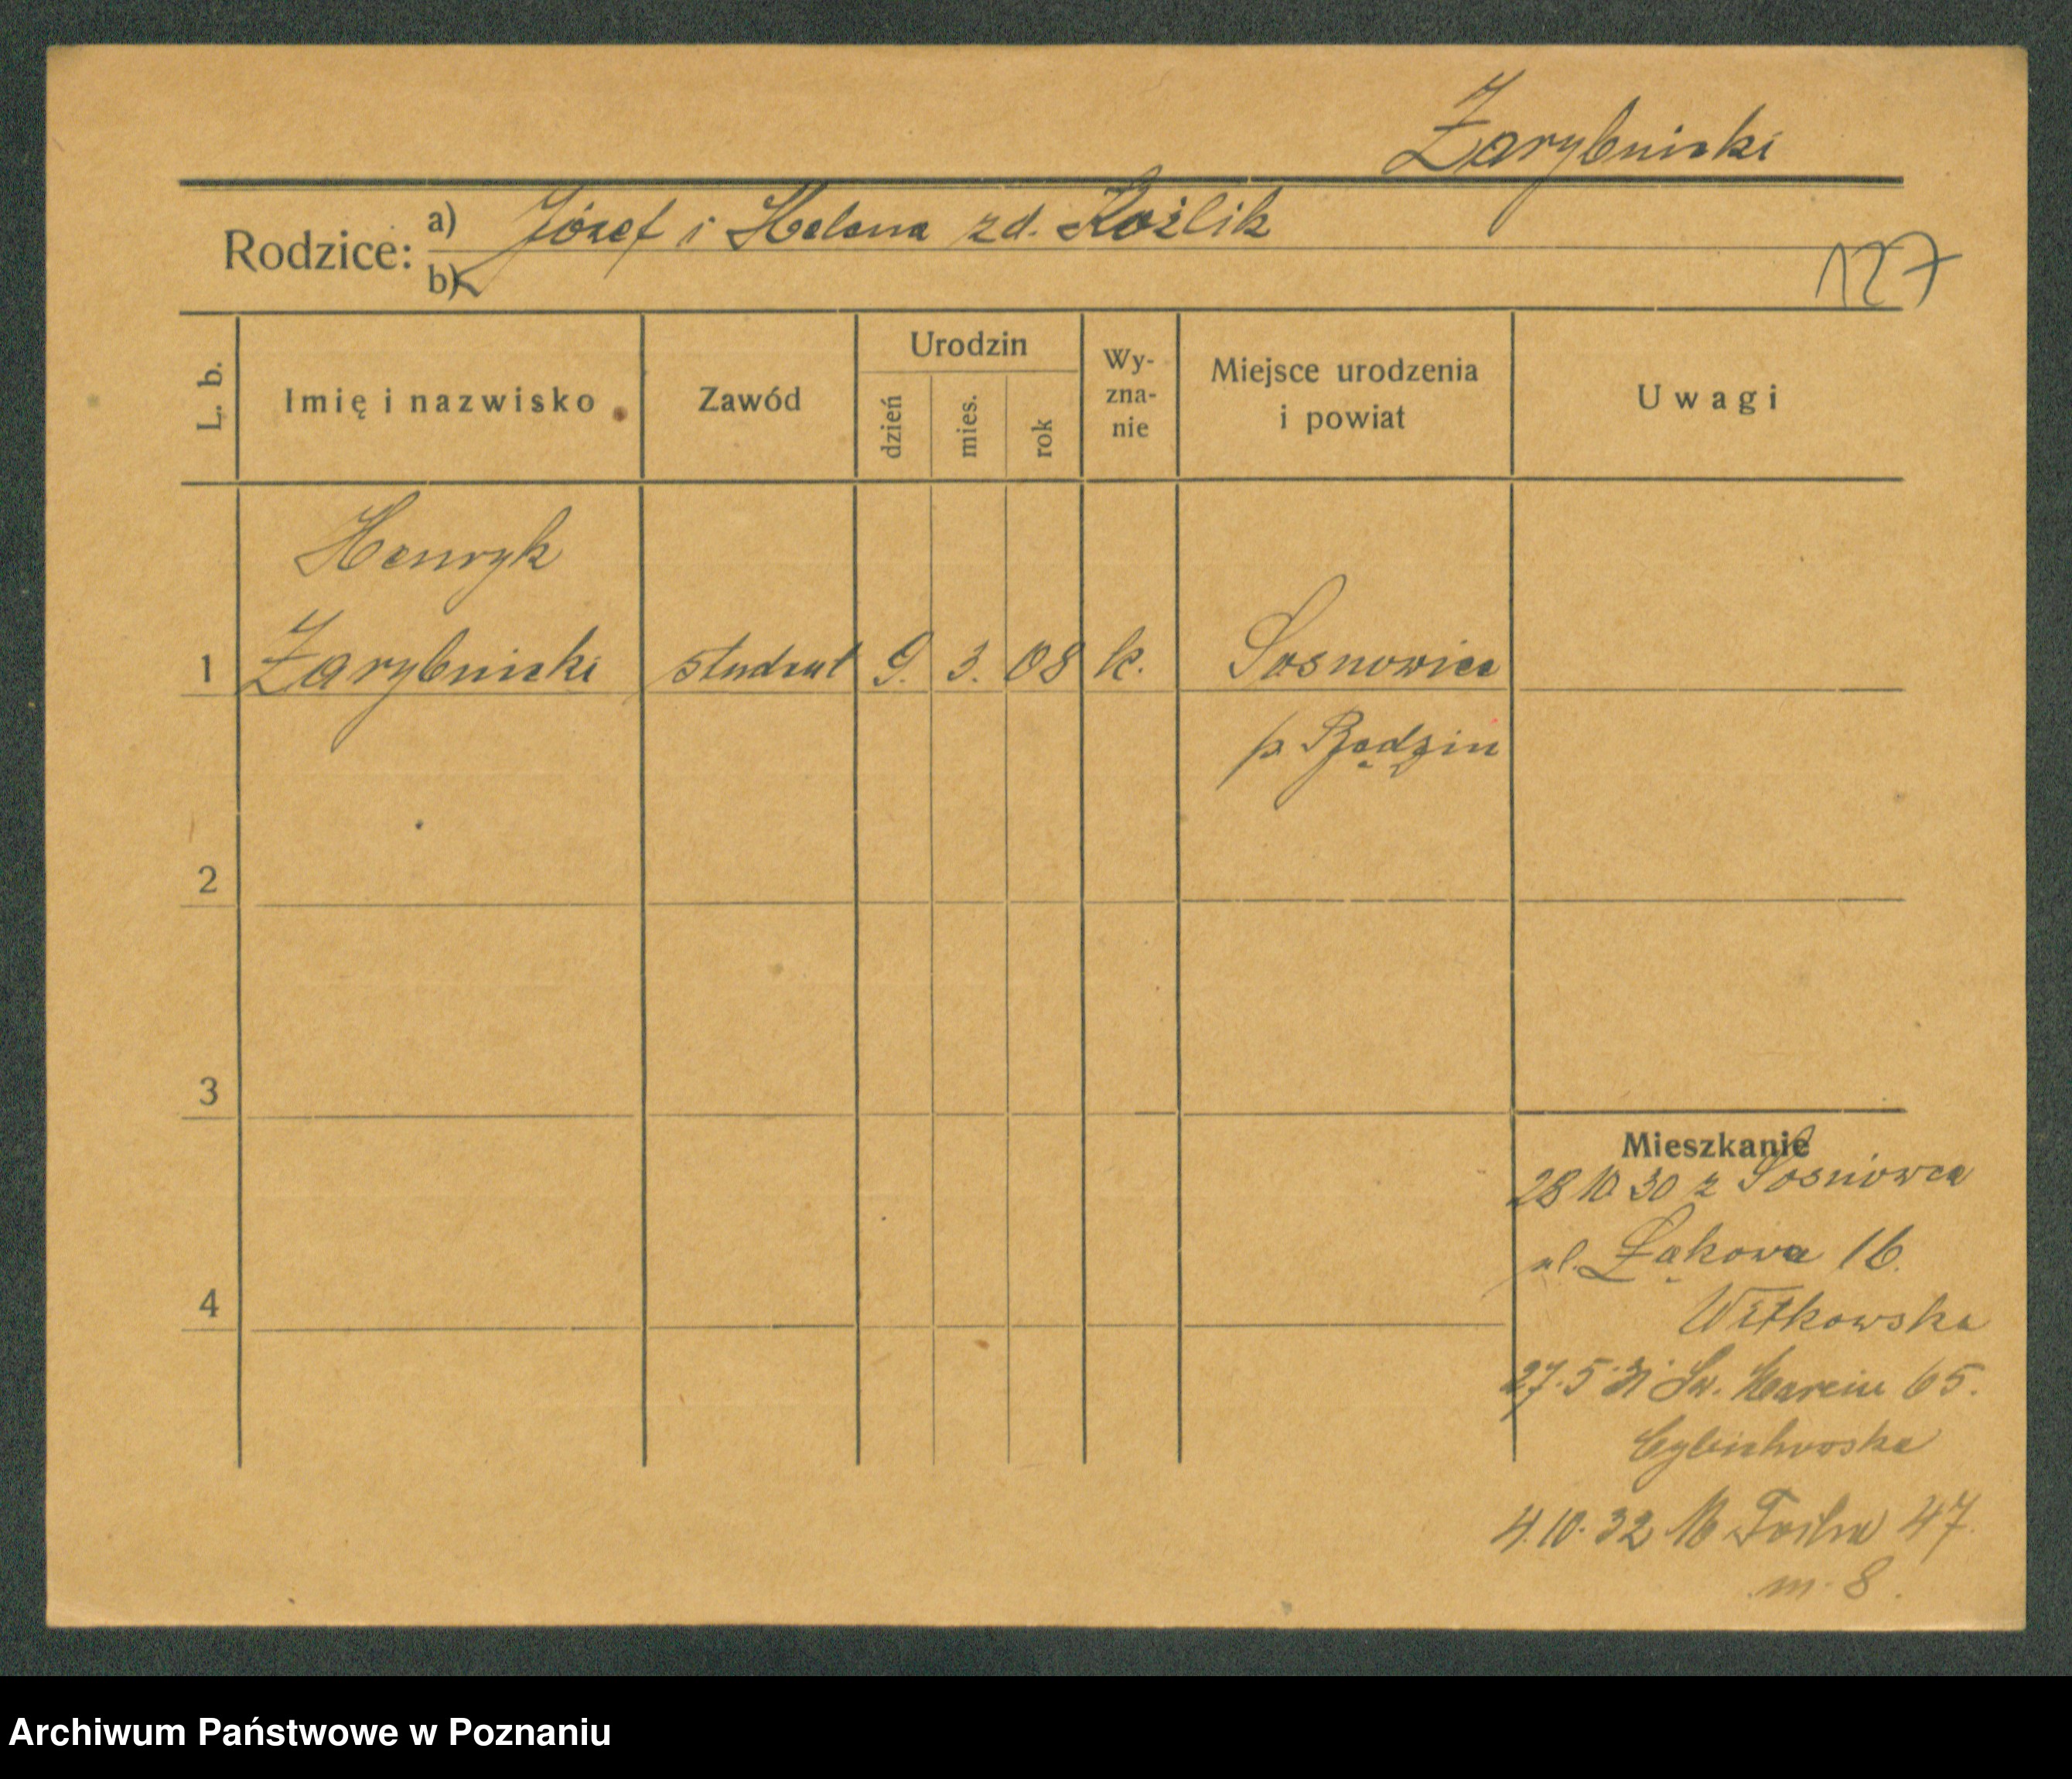 Zarybnicki
Rodzice: a) Józef i Helena zd. Koźlik
b)
127
L. b.
Imię i nazwisko
Zawód
Urodzin
dzień
mies.
rok
Wy-
zna-
nie
Miejsce urodzenia
i powiat
Uwagi
Henryk
1 Zarybnicki student 9. 3. 08 k. Sosnowice
p. Będzin
2
3
4
Mieszkanie
28 10 30 z Sosnowca
ul. Łąkowa 16.
Witkowska
27.5 31 Św. Marcin 65.
4.10.32 M Focha 47.
m. 8.
Archiwum Państwowe w Poznaniu